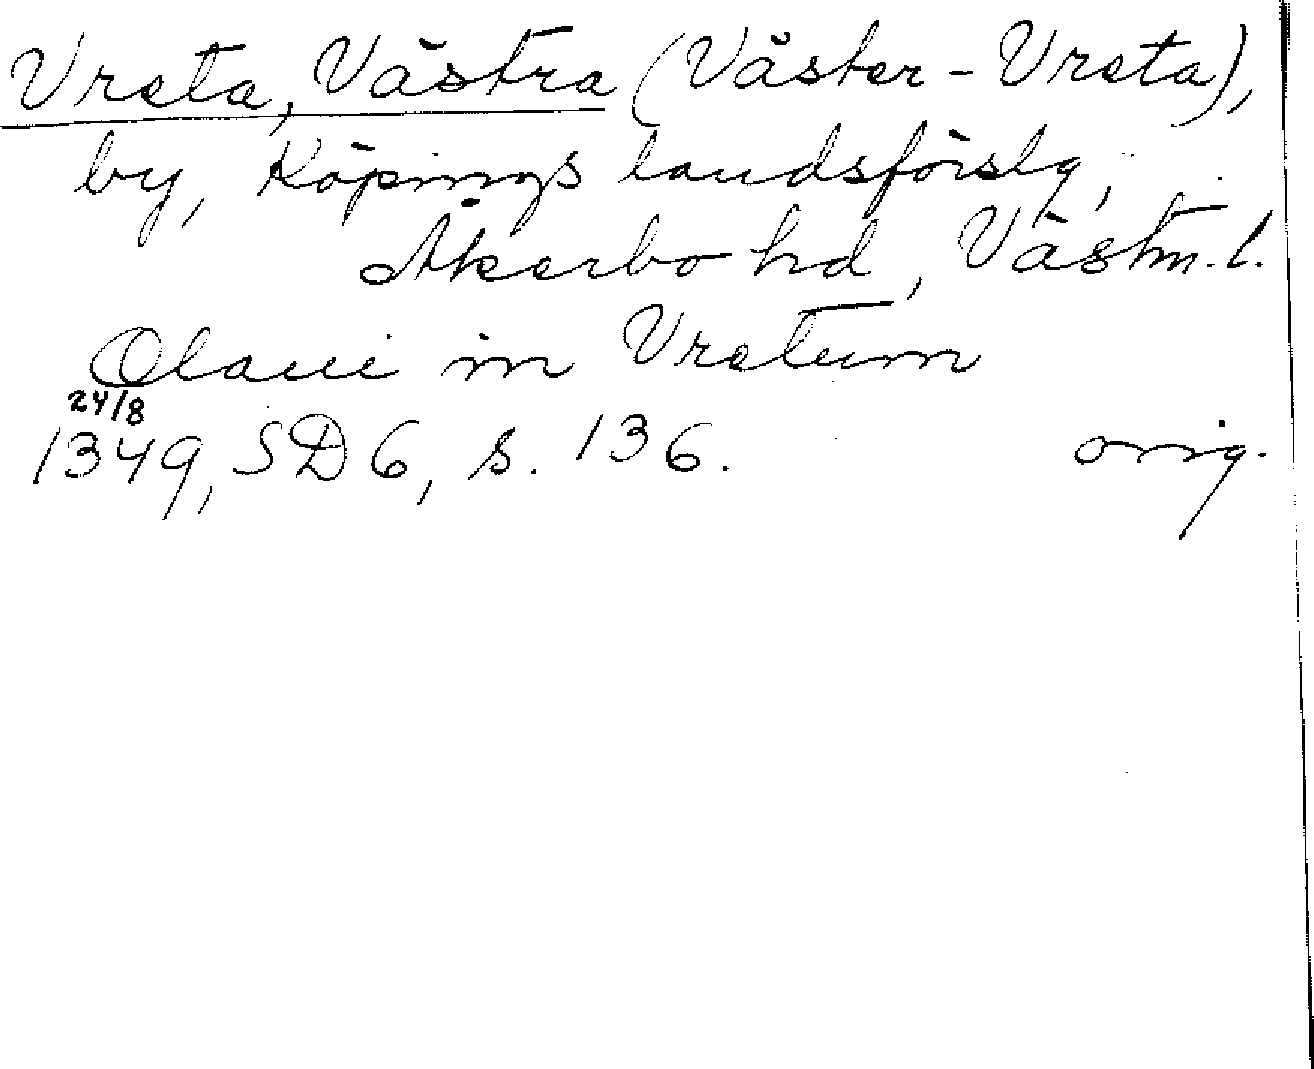 Vreta, Västra (Väster-Vreta),
by, Köpings landsförslg,
Åkerbo hd, Västm. l.
Olaui in Vretum
24/8
1349, SD 6, s. 136. orig.